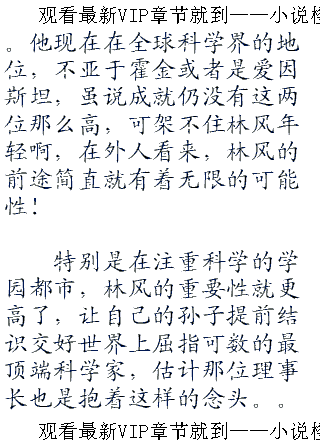 观看最新VIP章节就到——小说
。他现在在全球科学界的地
位，不亚于霍金或者是爱因
斯坦，虽说成就仍没有这两
位那么高，可架不住林风年
轻啊，在外人看来，林风的
前途简直就有着无限的可能
性！
特别是在注重科学的学
园都市，林风的重要性就更
高了，让自己的孙子提前结
识交好世界上屈指可数的最
顶端科学家，估计那位理事
长也是抱着这样的念头。。
观看最新VIP章节就到——小说